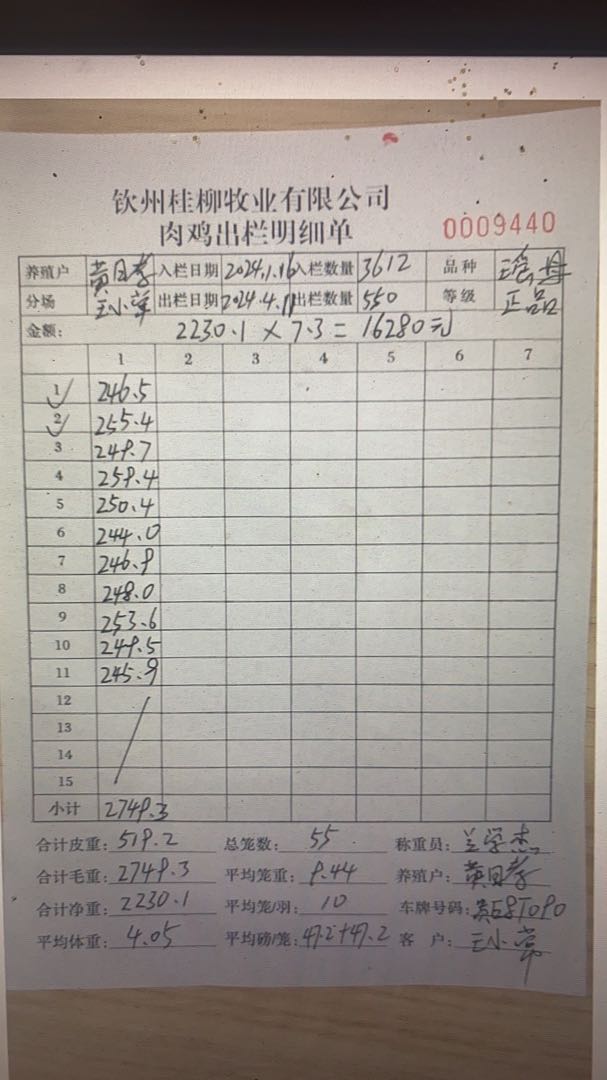 钦州桂柳牧业有限公司
肉鸡出栏明细单
0009440
养殖户 入栏日期 2024.1.16 入栏数量 3612 品种
分场 王小常 出栏日期 2024.4.11 出栏数量 550 等级 正品
金额: 2230.1 × 7.3 = 16280元
1 2 3 4 5 6 7
1 246.5
2 255.4
3 249.7
4 259.4
5 250.4
6 244.0
7 246.9
8 248.0
9 253.6
10 249.5
11 245.9
12
13
14
15
小计 2749.3
合计皮重: 519.2 总笼数: 55 称重员: 兰学杰
合计毛重: 2749.3 平均笼重: 9.44 养殖户:
合计净重: 2230.1 平均笼/羽: 10 车牌号码:
平均体重: 4.05 平均磅/笼: 47.2+47.2 客 户: 王小常